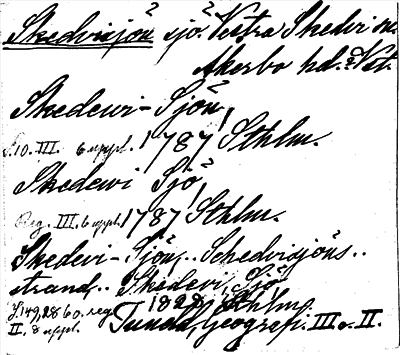 Skedvisjön sjö. Vestra Skedvi sn.
Åkerbo hd. Vst.
Skedewi-Sjön
S. 10. III. 6 uppl. 1787 Sthlm.
Skedewi Sjö
Reg. III. 6 uppl. 1787 Sthlm.
Skedevi-Sjön.. Schedvisjöns..
strand.. Skedevi Sjö
S. 149, 28 60. reg. 1828, Sthlm.
II. 8 uppl. Tuneld, Geografi. III o. II.